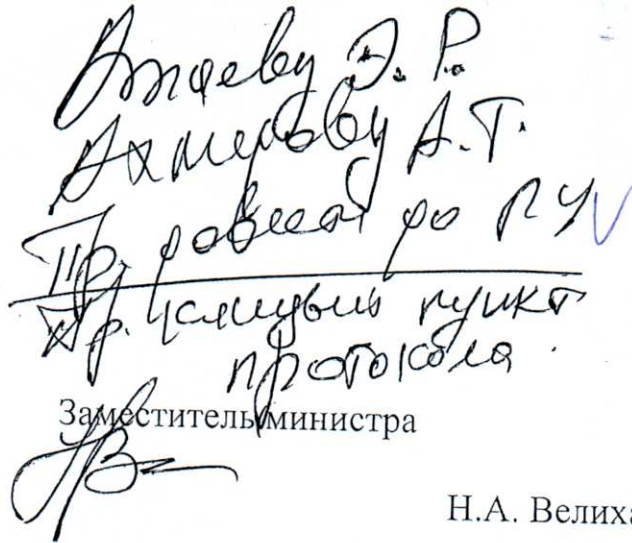 Э. Р.
Ахмерову А. Т.
Пр. довести до РУ
Пр. пункт
протокола.
Заместитель министра
Н.А. Велиха